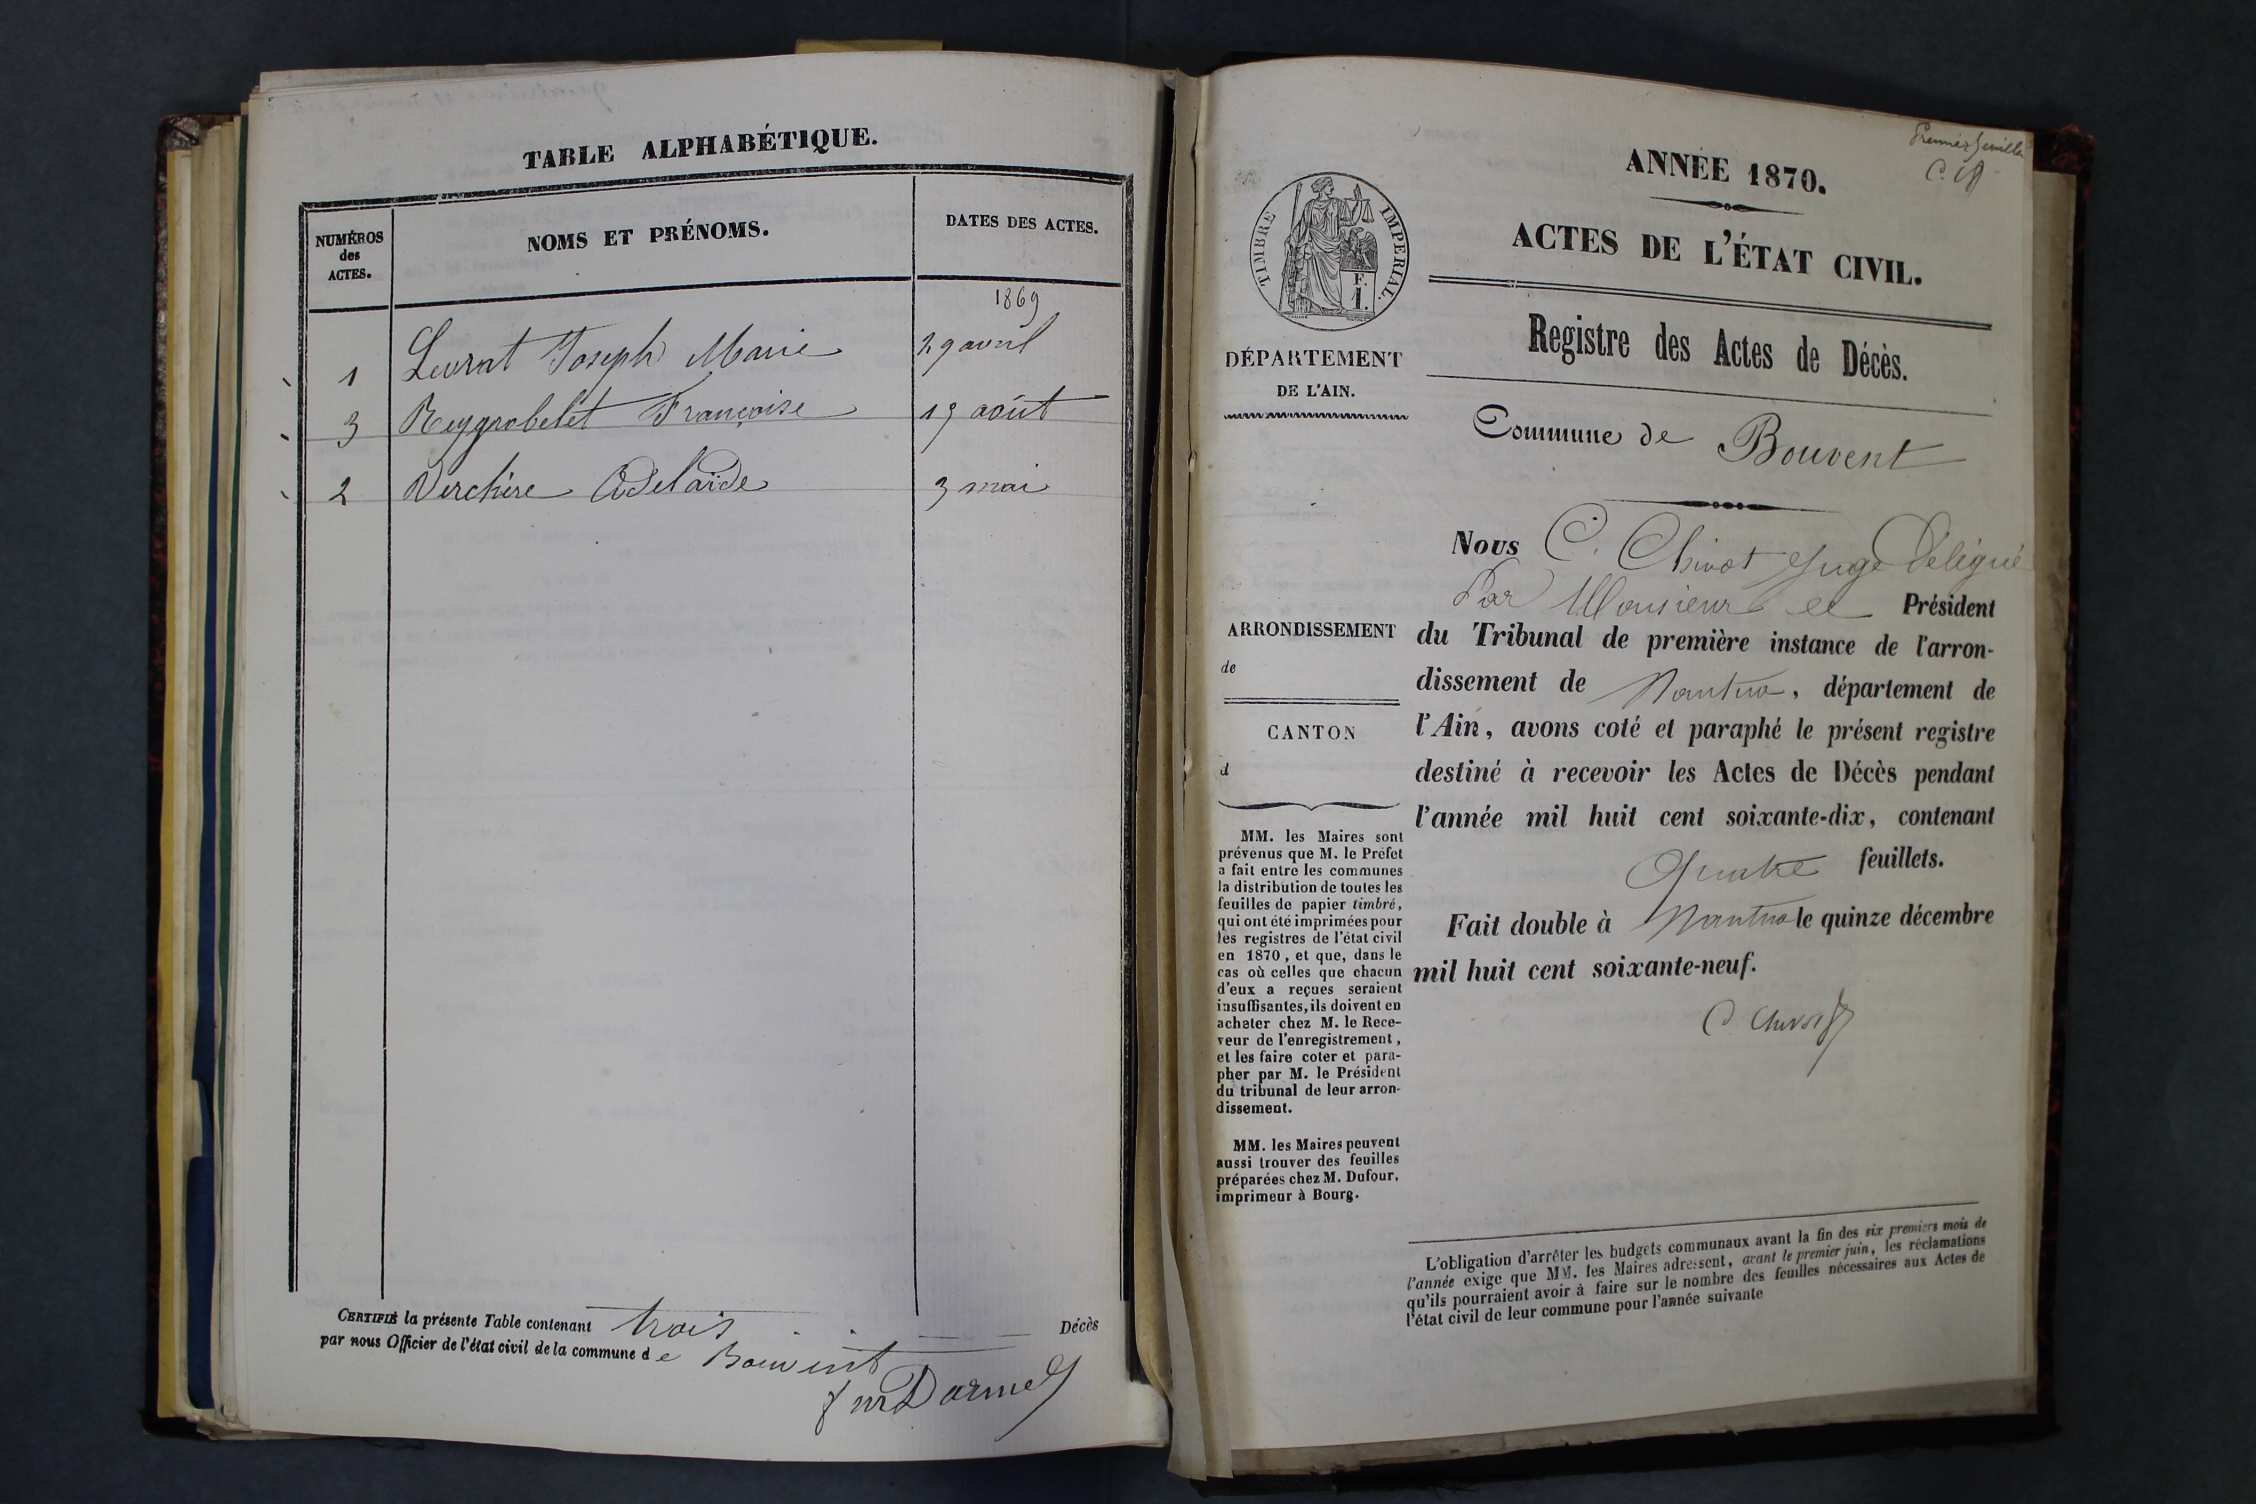 TABLE ALPHABÉTIQUE.
NUMÉROS
des
ACTES.
NOMS ET PRÉNOMS.
DATES DES ACTES.
1869
1 Levrat Joseph Marie 29 avril
3 Reygrobelet Françoise 19 août
2 Verchère Adélaïde 3 mai
CERTIFIÉ la présente Table contenant trois Décès
par nous Officier de l'état civil de la commune de Bouvent
Premier feuillet
ANNÉE 1870.
ACTES DE L'ÉTAT CIVIL.
Registre des Actes de Décès.
TIMBRE IMPERIAL.
F.
1.
DÉPARTEMENT
DE L'AIN.
Commune de Bouvent
Nous C. Chivot Juge délégué
Par Monsieur le Président
du Tribunal de première instance de l'arron-
dissement de Nantua, département de
l'Ain, avons coté et paraphé le présent registre
destiné à recevoir les Actes de Décès pendant
l'année mil huit cent soixante-dix, contenant
Quatre feuillets.
Fait double à Nantua le quinze décembre
mil huit cent soixante-neuf.
C. Chivot
ARRONDISSEMENT
de
CANTON
d
MM. les Maires sont
prévenus que M. le Préfet
a fait entre les communes
la distribution de toutes les
feuilles de papier timbré,
qui ont été imprimées pour
les registres de l'état civil
en 1870, et que, dans le
cas où celles que chacun
d'eux a reçues seraient
insuffisantes, ils doivent en
acheter chez M. le Rece-
veur de l'enregistrement,
et les faire coter et para-
pher par M. le Président
du tribunal de leur arron-
dissement.
MM. les Maires peuvent
aussi trouver des feuilles
préparées chez M. Dufour,
imprimeur à Bourg.
L'obligation d'arrêter les budgets communaux avant la fin des six premiers mois de
l'année exige que MM. les Maires adressent, avant le premier juin, les réclamations
qu'ils pourraient avoir à faire sur le nombre des feuilles nécessaires aux Actes de
l'état civil de leur commune pour l'année suivante